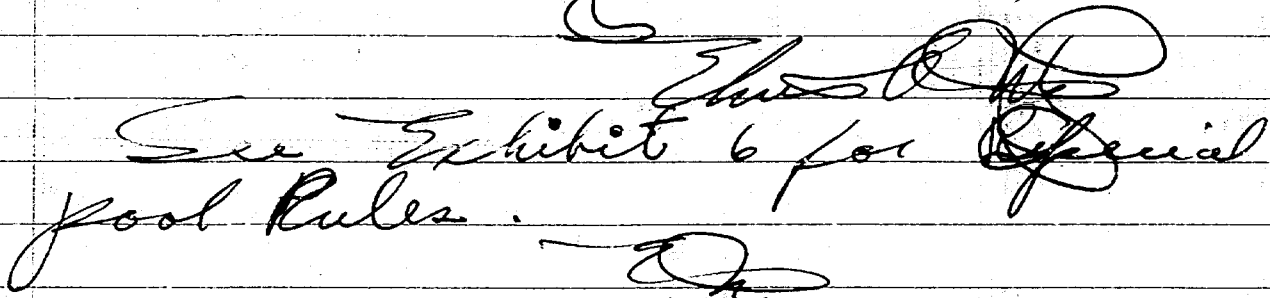 See Exhibit 6 for Special
pool Rules.